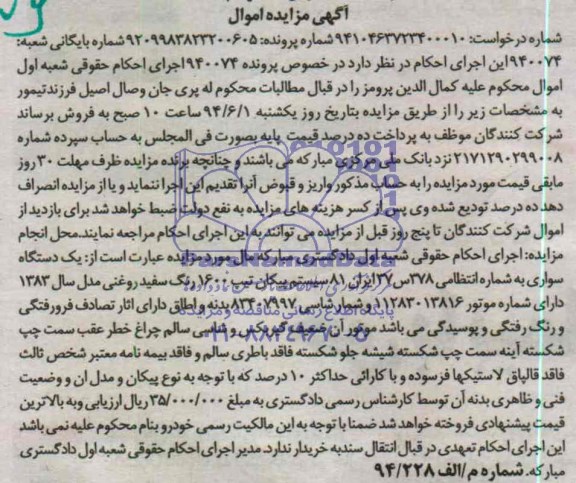 آگهی مزایده اموال
شماره درخواست: ۹۴۱۰۴۶۳۷۲۳۴۰۰۰۱۰ شماره پرونده: ۹۲۰۹۹۸۳۸۲۳۲۰۰۶۰۵ شماره بایگانی شعبه:
۹۴۰۰۷۴ این اجرای احکام در نظر دارد در خصوص پرونده ۹۴۰۰۷۴ اجرای احکام حقوقی شعبه اول
اموال محکوم علیه کمال الدین پرومز را در قبال مطالبات محکوم له پری جان وصال اصیل فرزند تیمور
به مشخصات زیر را از طریق مزایده بتاریخ روز یکشنبه ۹۴/۶/۱ ساعت ۱۰ صبح به فروش برساند
شرکت کنندگان موظف به پرداخت ده درصد قیمت پایه بصورت فی المجلس به حساب سپرده شماره
۲۱۷۱۲۹۰۲۹۹۰۰۸ نزد بانک ملی مرکزی مبارکه می باشند و چنانچه برنده مزایده ظرف مهلت ۳۰ روز
مابقی قیمت مورد مزایده را به حساب مذکور واریز و قبوض آنرا تقدیم این اجرا ننماید و یا از مزایده انصراف
دهد ده درصد تودیع شده وی پس از کسر هزینه های مزایده به نفع دولت ضبط خواهد شد برای بازدید از
اموال شرکت کنندگان تا پنج روز قبل از مزایده می توانند به این اجرای احکام مراجعه نمایند. محل انجام
مزایده: اجرای احکام حقوقی شعبه اول دادگستری مبارکه مال مورد مزایده عبارت است از: یک دستگاه
سواری به شماره انتظامی ۳۷۸س۳۷ ایران ۸۱ سیستم پیکان تیپ ۱۶۰۰ رنگ سفید روغنی مدل سال ۱۳۸۳
دارای شماره موتور ۱۱۲۸۳۰۱۳۸۱۶ و شمار شاسی ۸۳۴۰۷۹۹۷ بدنه و اطاق دارای اثار تصادف فرورفتگی
و رنگ رفتگی و پوسیدگی می باشد موتور آن ضعیف گیربکس و شاسی سالم چراغ خطر عقب سمت چپ
شکسته آینه سمت چپ شکسته شیشه جلو شکسته فاقد باطری سالم و فاقد بیمه نامه معتبر شخص ثالث
فاقد قالپاق لاستیکها فرسوده و با کارائی حداکثر ۱۰ درصد که با توجه به نوع پیکان و مدل ان و وضعیت
فنی و ظاهری بدنه آن توسط کارشناس رسمی دادگستری به مبلغ ۳۵/۰۰۰/۰۰۰ ریال ارزیابی و به بالاترین
قیمت پیشنهادی فروخته خواهد شد ضمنا با توجه به این مالکیت رسمی خودرو بنام محکوم علیه نمی باشد
این اجرای احکام تعهدی در قبال انتقال سند به خریدار ندارد. مدیر اجرای احکام حقوقی شعبه اول دادگستری
مبارکه. شماره م/الف ۹۴/۲۲۸